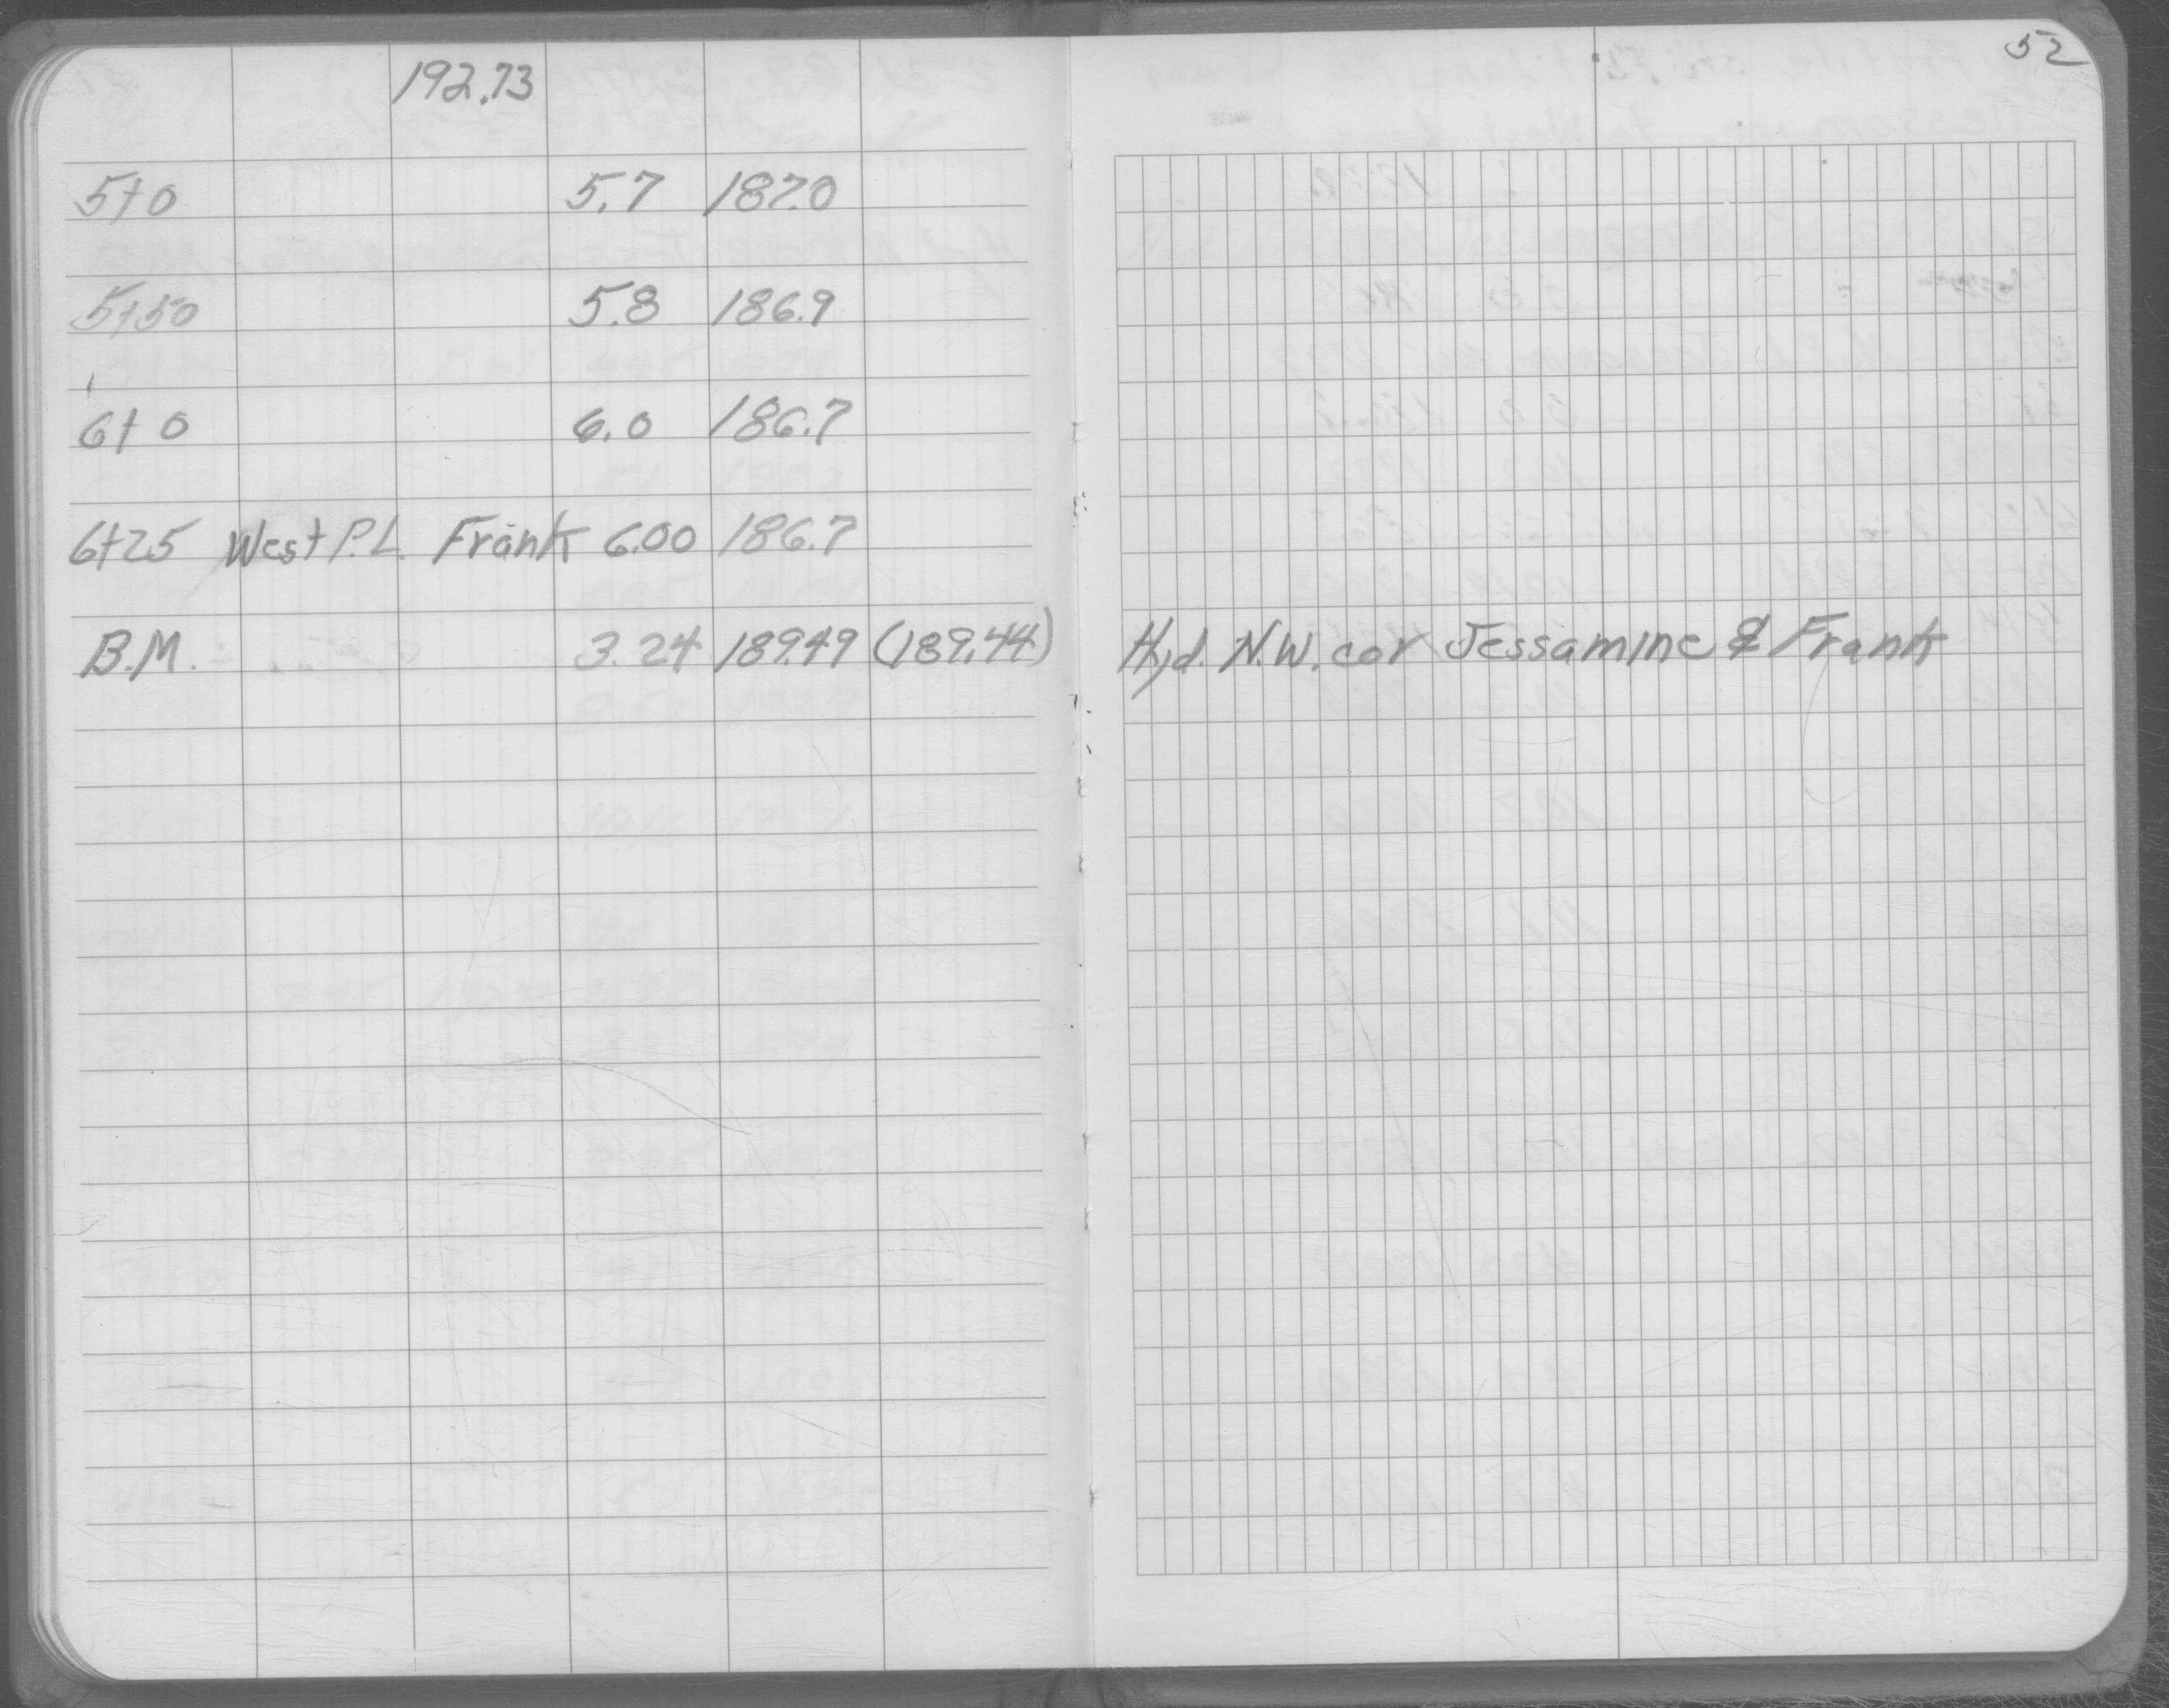 192.73
5+0 5.7 187.0
5+50 5.8 186.9
6+0 6.0 186.7
6+25 West P.L. Frank 6.00 186.7
B.M. 3.24 189.49 (189.44)
52
Hyd. N.W. cor Jessamine & Frank